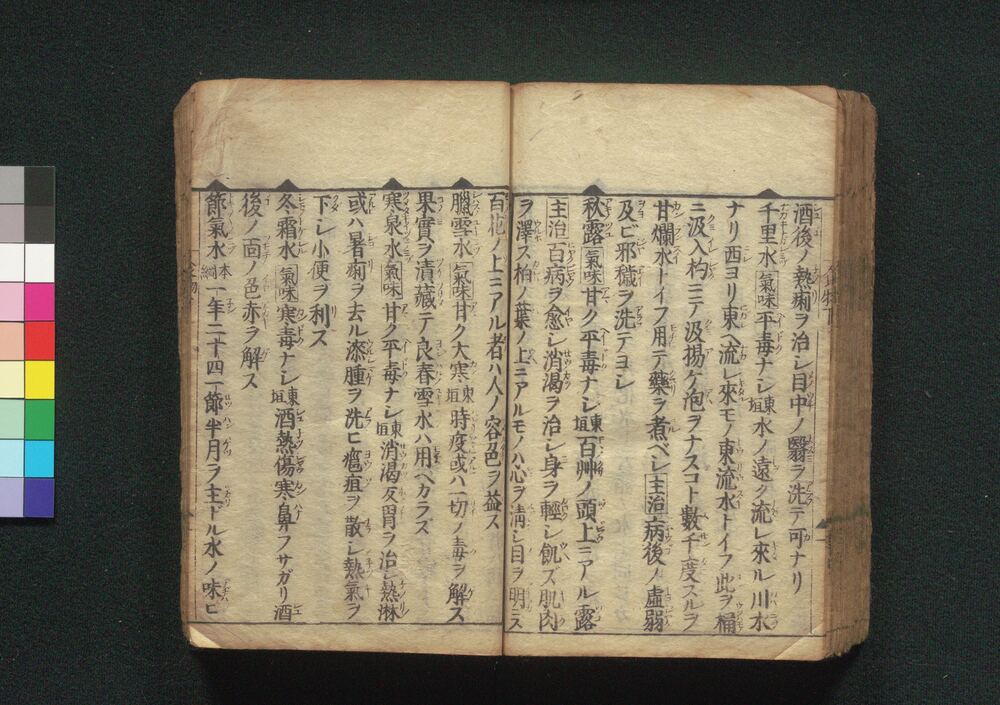 酒後ノ熱痢ヲ治シ目中ノ翳ヲ洗テ可ナリ
千里水 氣味 平毒ナシ 東垣 水ノ遠ク流レ來ル川水
ナリ西ヨリ東ヘ流レ來モノ東流水トイフ此ヲ桶
ニ汲入杓ニテ汲揚ケ泡ヲナスコト數千度スルヲ
甘爛水トイフ用テ藥ヲ煮ベシ 主治 病後ノ虚弱
及ビ邪穢ヲ洗テヨシ
秋露 氣味 甘ク平毒ナシ 東垣 百艸ノ頭上ニアル露
主治 百病ヲ愈シ消渇ヲ治シ身ヲ輕シ飢ズ肌肉
ヲ澤ス柏ノ葉ノ上ニアルモノハ心ヲ淸シ目ヲ明ニス
百花ノ上ニアル者ハ人ノ容色ヲ益ス
臘雪水 氣味 甘ク大寒 東垣 時疫或ハ一切ノ毒ヲ解ス
果實ヲ漬藏テ良春雪水ハ用ヘカラズ
寒泉水 氣味 甘ク平毒ナシ 東垣 消渇反胃ヲ治シ熱淋
或ハ暑痢ヲ去ル漆腫ヲ洗ヒ癰疽ヲ散シ熱氣ヲ
下シ小便ヲ利ス
冬霜水 氣味 寒毒ナシ 東垣 酒熱傷寒鼻フサガリ酒
後ノ面ノ色赤ヲ解ス
節氣水 本綱 一年二十四一節半月ヲ主トル水ノ味ヒ